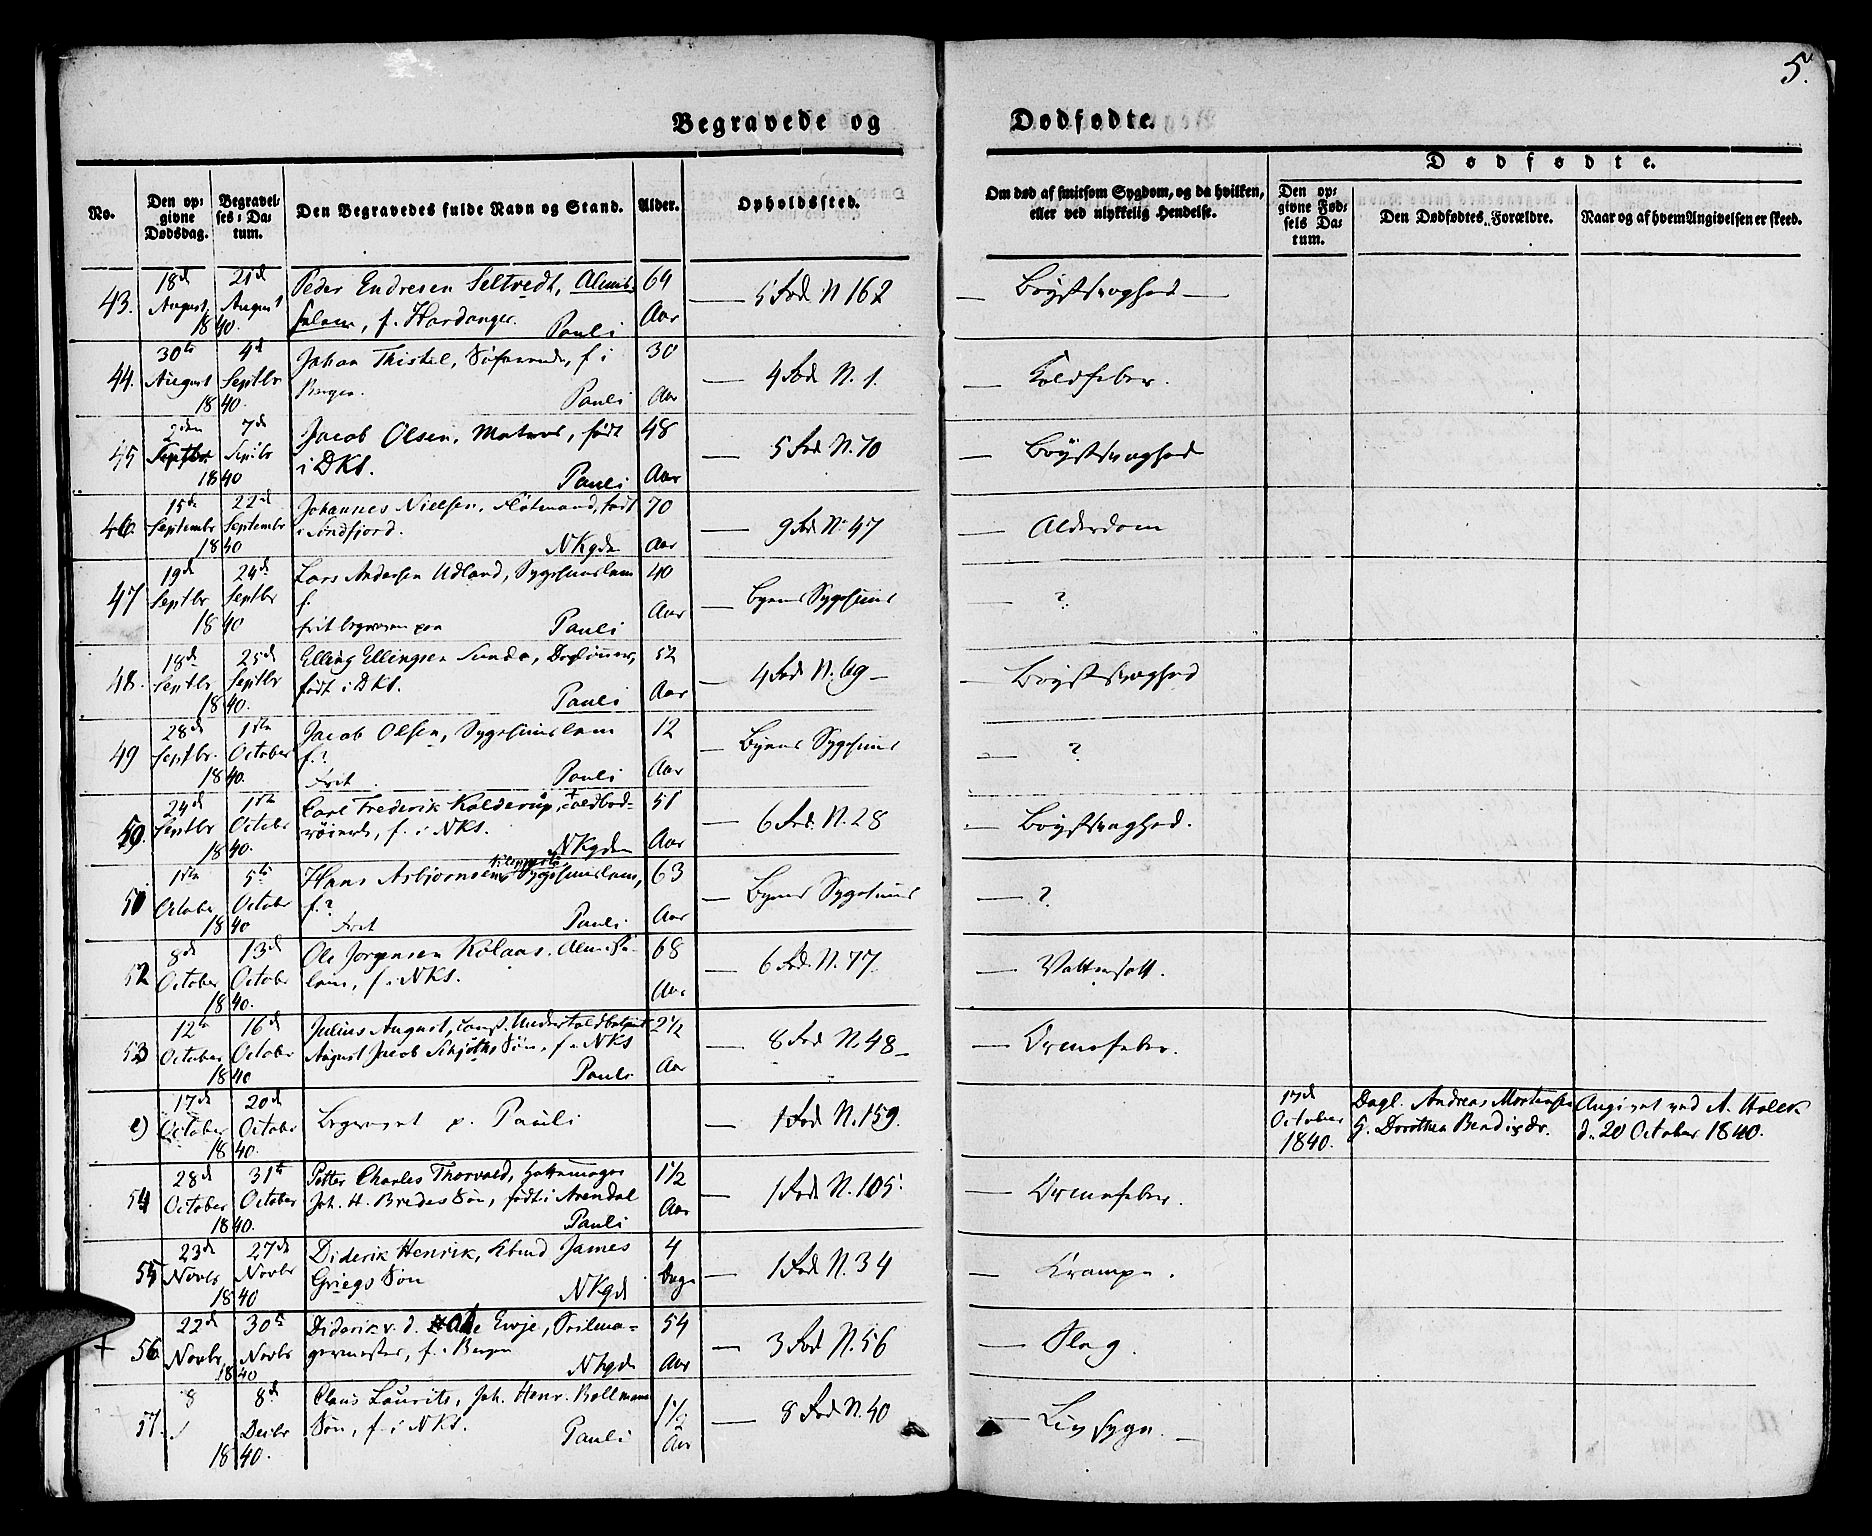 5.
Begravede og Dødfødte.
No.
Den op-
givne
Dødsdag.
Begravel-
ses-Da-
tum.
Den Begravedes fulde Navn og Stand.
Alder.
Opholdssted.
Om død af smitsom Sygdom, og da hvilken,
eller ved ulykkelig Hendelse.
Dødfødte.
Den op-
givne Fød-
sels Da-
tum.
Den Dødfødtes Forældre.
Naar og af hvem Angivelsen er skeed.
43. 18d August 21d August 1840. Peder Endresen Seltvedt, Almis-
lalem, f. Hardanger. Pauli
69 Aar
5 Rod N 162
Brystsvaghed
44. 30te August 4d Septbr 1840. Johan Thistel, Søfarende, f i
Bergen. Pauli
30 Aar
4 Rod N. 1.
Koldfeber.
45 2den Septbr 7d Septbr 1840 Jacob Olsen, Matros, født
i DKS. Pauli
48 Aar
5 Rod N. 70
Brystsvaghed
46. 15de Septembr 22de Septembr 1840 Johannes Nielsen, Flotmand, født
i Sondfjord. NKgde
70 Aar
9 Rod N. 47
Alderdom
47 19de Septbr 24de Septbr 1840 Lars Andersen Udland, Sygehuuslem
f.
frit begraven paa Pauli
40 Aar
Byens Sygehuus
?
48. 18d Septbr 25d Septbr 1840. Elling Ellingsen Sunde,
født i DKS. Pauli
52 Aar
4 Rod N. 69
Brystsvaghed
49 28d Septbr. 1ste October 1840. Jacob Olsen, Sygehuuslem
f.?
Frit Pauli
12 Aar
Byens Sygehuus
?
24d Septbr 1ste October 1840. Carl Frederik Kalderup, Toldbod-
røiert, f. i NKS. NKgden
51 Aar
6 Rod. N. 28
Brystsvaghed.
1ste October 5te October 1840 Hans Asbjørnsen, Sygehuuslem,
f.?
Frit Pauli
63 Aar
Byens Sygehuus
?
52 8d October 13d October 1840. Ole Jørgensen Kolaas. Almisse-
lem, f. i NKS.
68 Aar
6 Rod. N. 77.
Vattersott.
53 12te October 16d October 1840 Julius August, const. Undertoldbetjent
August Jacob Schjøtts Søn, f. i NKS
Pauli
2 1/2 Aar
8 Rod N. 48
Ormefeber.
e) 17de October 20d October 1840. Begravet p. Pauli
1 Rod N. 159.
17de
October
1840.
Dagl. Andreas Mortensen
G. Dorothea Bendixdr.
Angivet ved A. Holck
d. 20 October 1840.
54 28d October 31te October 1840. Petter Charles Thorvald, Hattemager
Joh. H. Bredes Søn, født i Arendal
Pauli
1 1/2 Aar
1 Rod N. 105.
Ormefeber.
55 23de Novbr 27de Novbr 1840 Diderik Henrik, Kbmd James
Griegs Søn NKgd
4 Dage
1 Rod N. 34
Krampe.
+ 56 22d Novbr 30te Novbr 1840 Diderik v. d. Ewje,
germester, f. i Bergen NKgde
54 Aar
3 Rod N. 56
Slag.
57. 8 8d Decbr 1840. Claus Lauritz, Joh. Henr. Bollmans
Søn, f. i NKS. Pauli
1 1/2 Aar
8 Rod N. 40
Livsyge.